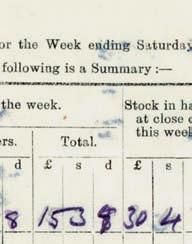 or the Week ending Saturday
following is a Summary:—
the week.
Stock in ha
at close o
this week
ers.
Total.
d £ s d £ s
8 153 8 30 4